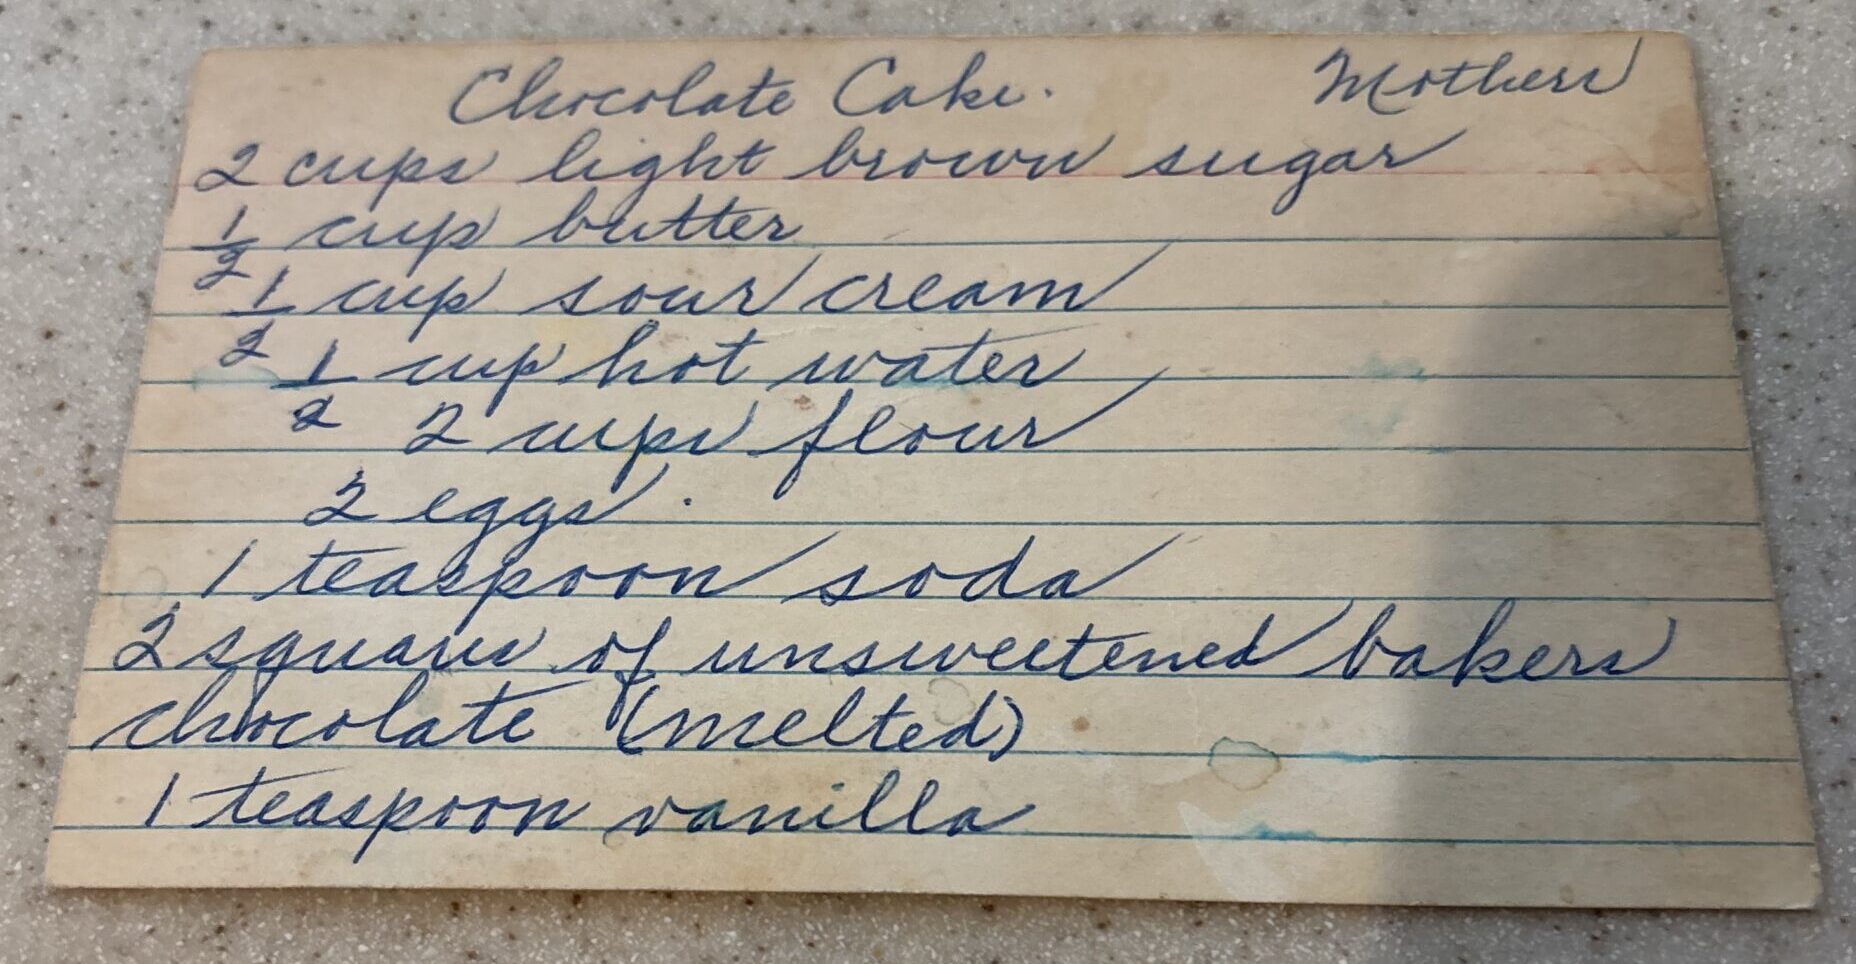 Chocolate Cake. Mothers
2 cups light brown sugar
1/2 cup butter
1/2 cup sour cream
1/2 cup hot water
2 cups flour
2 eggs.
1 teaspoon soda
2 squares of unsweetened bakers
chocolate (melted)
1 teaspoon vanilla